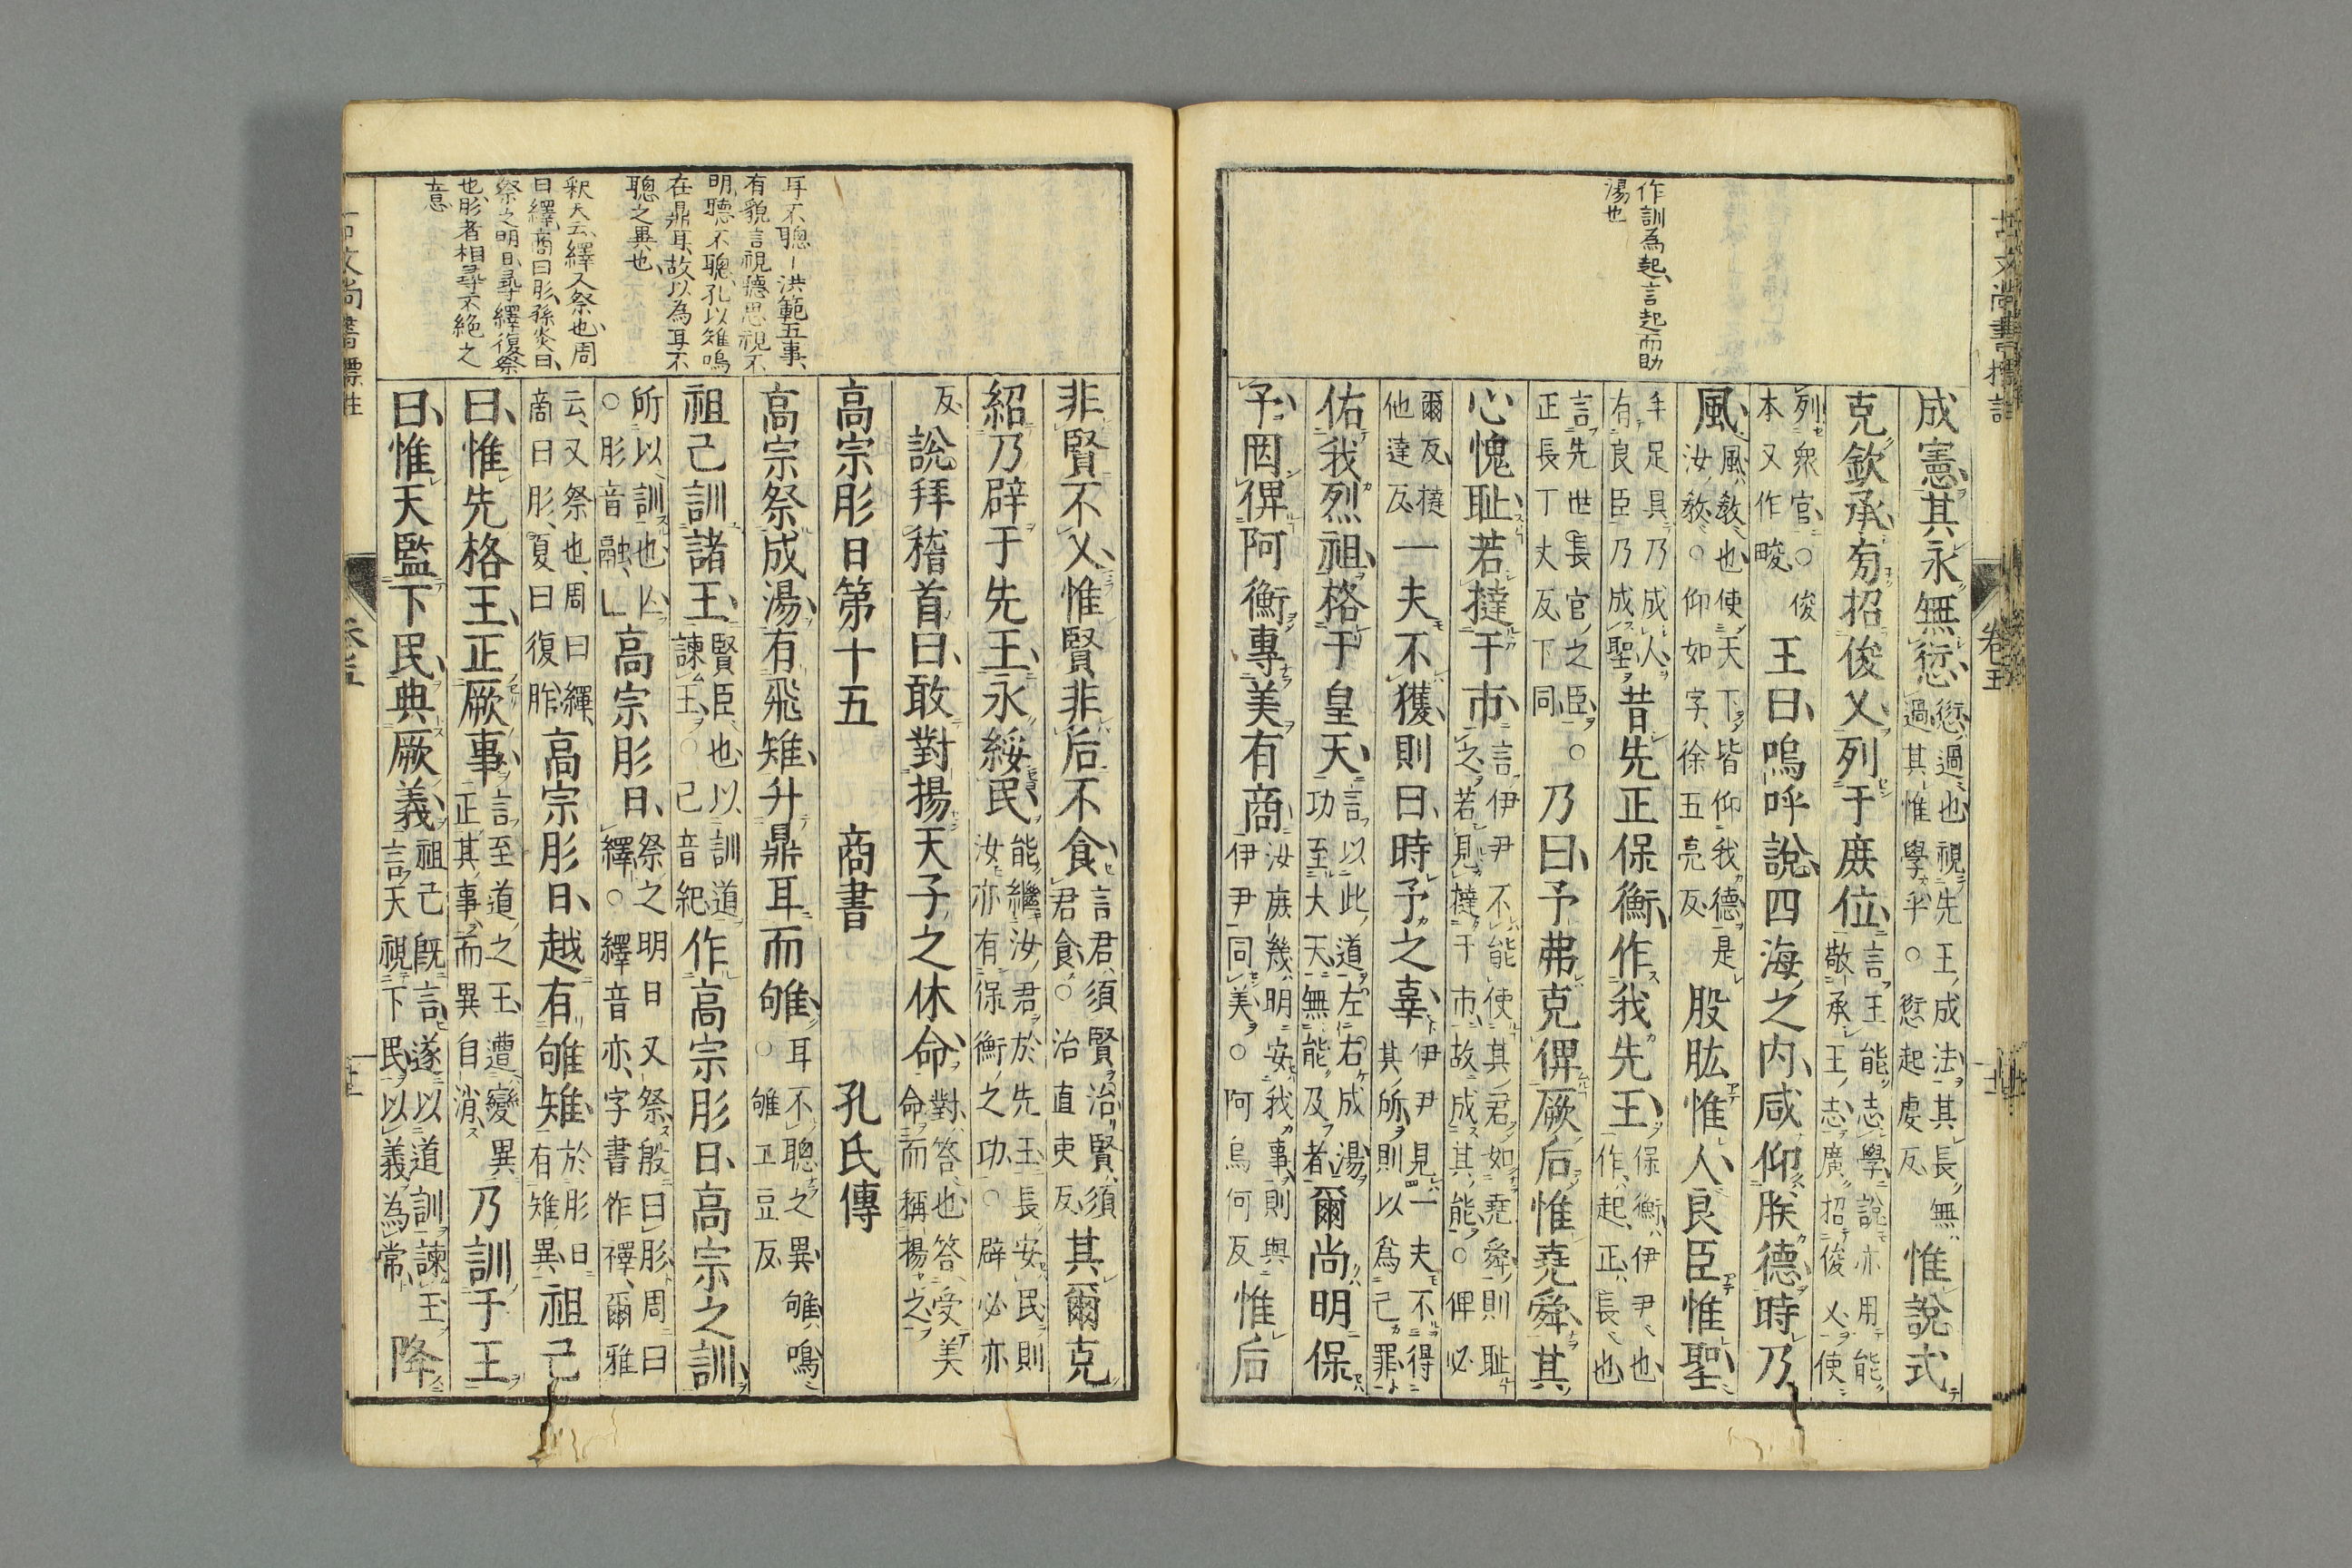 古文尚書標註
卷五
作訓為起、言起而助
湯也
成憲其永無愆、愆過也視先王成法其長無
過其惟學乎○愆起虔反惟說式
克欽承旁招俊乂列于庶位、言王能志學說亦用能
敬承王志廣招俊乂使
列衆官○俊
本又作畯王曰、嗚呼說四海之内咸仰朕德時乃
風、風教也使天下皆仰我德是
汝教○仰如字、徐五亮反股肱惟人良臣惟聖
手足具乃成人
有良臣乃成聖昔先正保衡作我先王、保衡伊尹也
作起正長也
言先世長官之臣○
正長丁丈反下同乃曰予弗克俾厥后惟堯舜其
心愧耻若撻于市、言伊尹不能使其君如堯舜則耻
之若見撻于市故成其能○俾必
爾反撻
他達反一夫不獲則曰時予之辜、伊尹見一夫不得
其所則以爲己罪
佑我烈祖格于皇天、言以此道左右成湯
功至大天無能及者爾尚明保
予罔俾阿衡專美有商、汝庶幾明安我事則與
伊尹同美○阿烏何反惟后
耳不聰-洪範五事、
有貌言視聽思視不
明聽不聰孔以雉鳴
在鼎耳故以為耳不
聰之異也
釈天云、繹又祭也、周
曰繹商曰肜孫炎曰、
祭之明日尋繹復祭
也肜者相尋不絶之
意
非賢不乂惟賢非后不食、言君須賢治賢須
君食○治直吏反其爾克
紹乃辟于先王永綏民、能繼汝君於先王長安民則
汝亦有保衡之功○辟必亦
反說拜稽首曰、敢對揚天子之休命、對答也答受美
命而稱揚之
高宗肜日第十五 商書 孔氏傳
高宗祭成湯有飛雉升鼎耳而雊、耳不聰之異雊鳴
○雊工豆反
祖己訓諸王、賢臣也以訓道
諫王○己音紀作高宗肜日高宗之訓
所以訓也亾
○肜音融高宗肜日、祭之明日又祭殷曰肜周曰
繹○繹音亦字書作襗爾雅
云、又祭也、周曰繹
商曰肜、夏曰復胙高宗肜日、越有雊雉、於肜日
有雉異祖己
曰、惟先格王正厥事、言至道之王遭變異
正其事而異自消乃訓于王
曰、惟天監下民典厥義、祖己既言遂以道訓諫王
言天視下民以義為常降
古文尚書標註
卷五